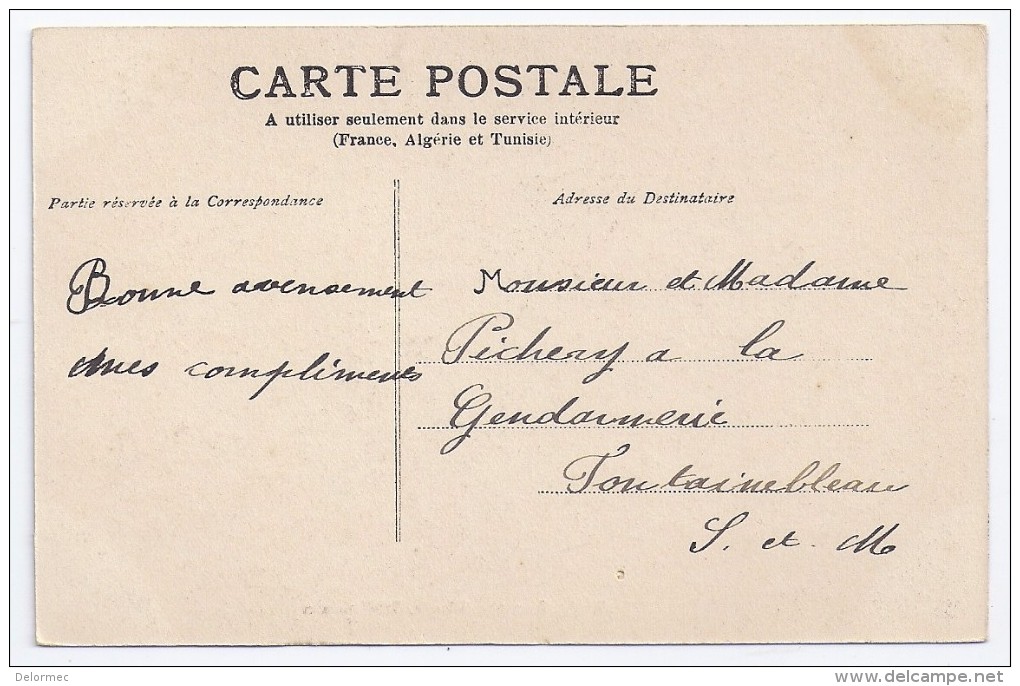 CARTE POSTALE
A utiliser seulement dans le service intérieur
(France, Algérie et Tunisie)
Partie réservée à la Correspondance
Adresse du Destinataire
Bonne avensement
mes compliments
Monsieur et Madame
Pichery a la
Gendarmerie
Fontainebleau
S. et M
Delormec
www.delcampe.net